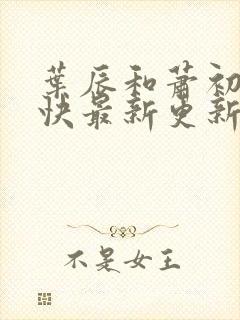 葉辰和蕭初
快最新更新
不是女王